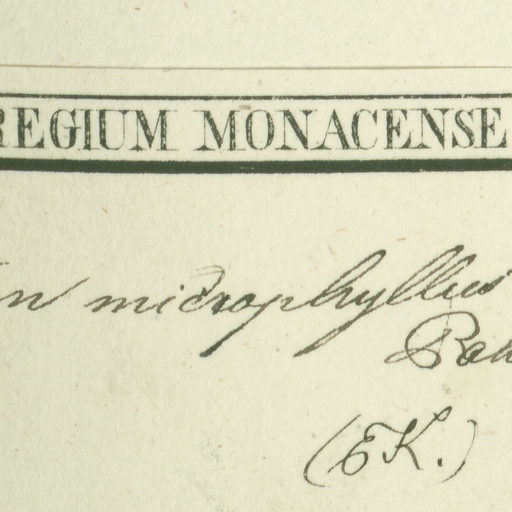 REGIUM MONACENSE
microphyllus
(EK.)